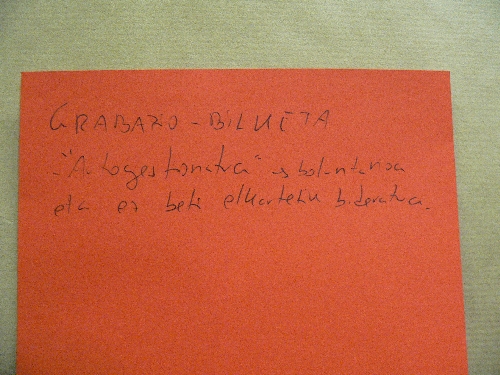 GRABAZKO-BILKETA
-"Autogestionatua" -> boluntarioa
eta ez beti elkartetik bideratua.